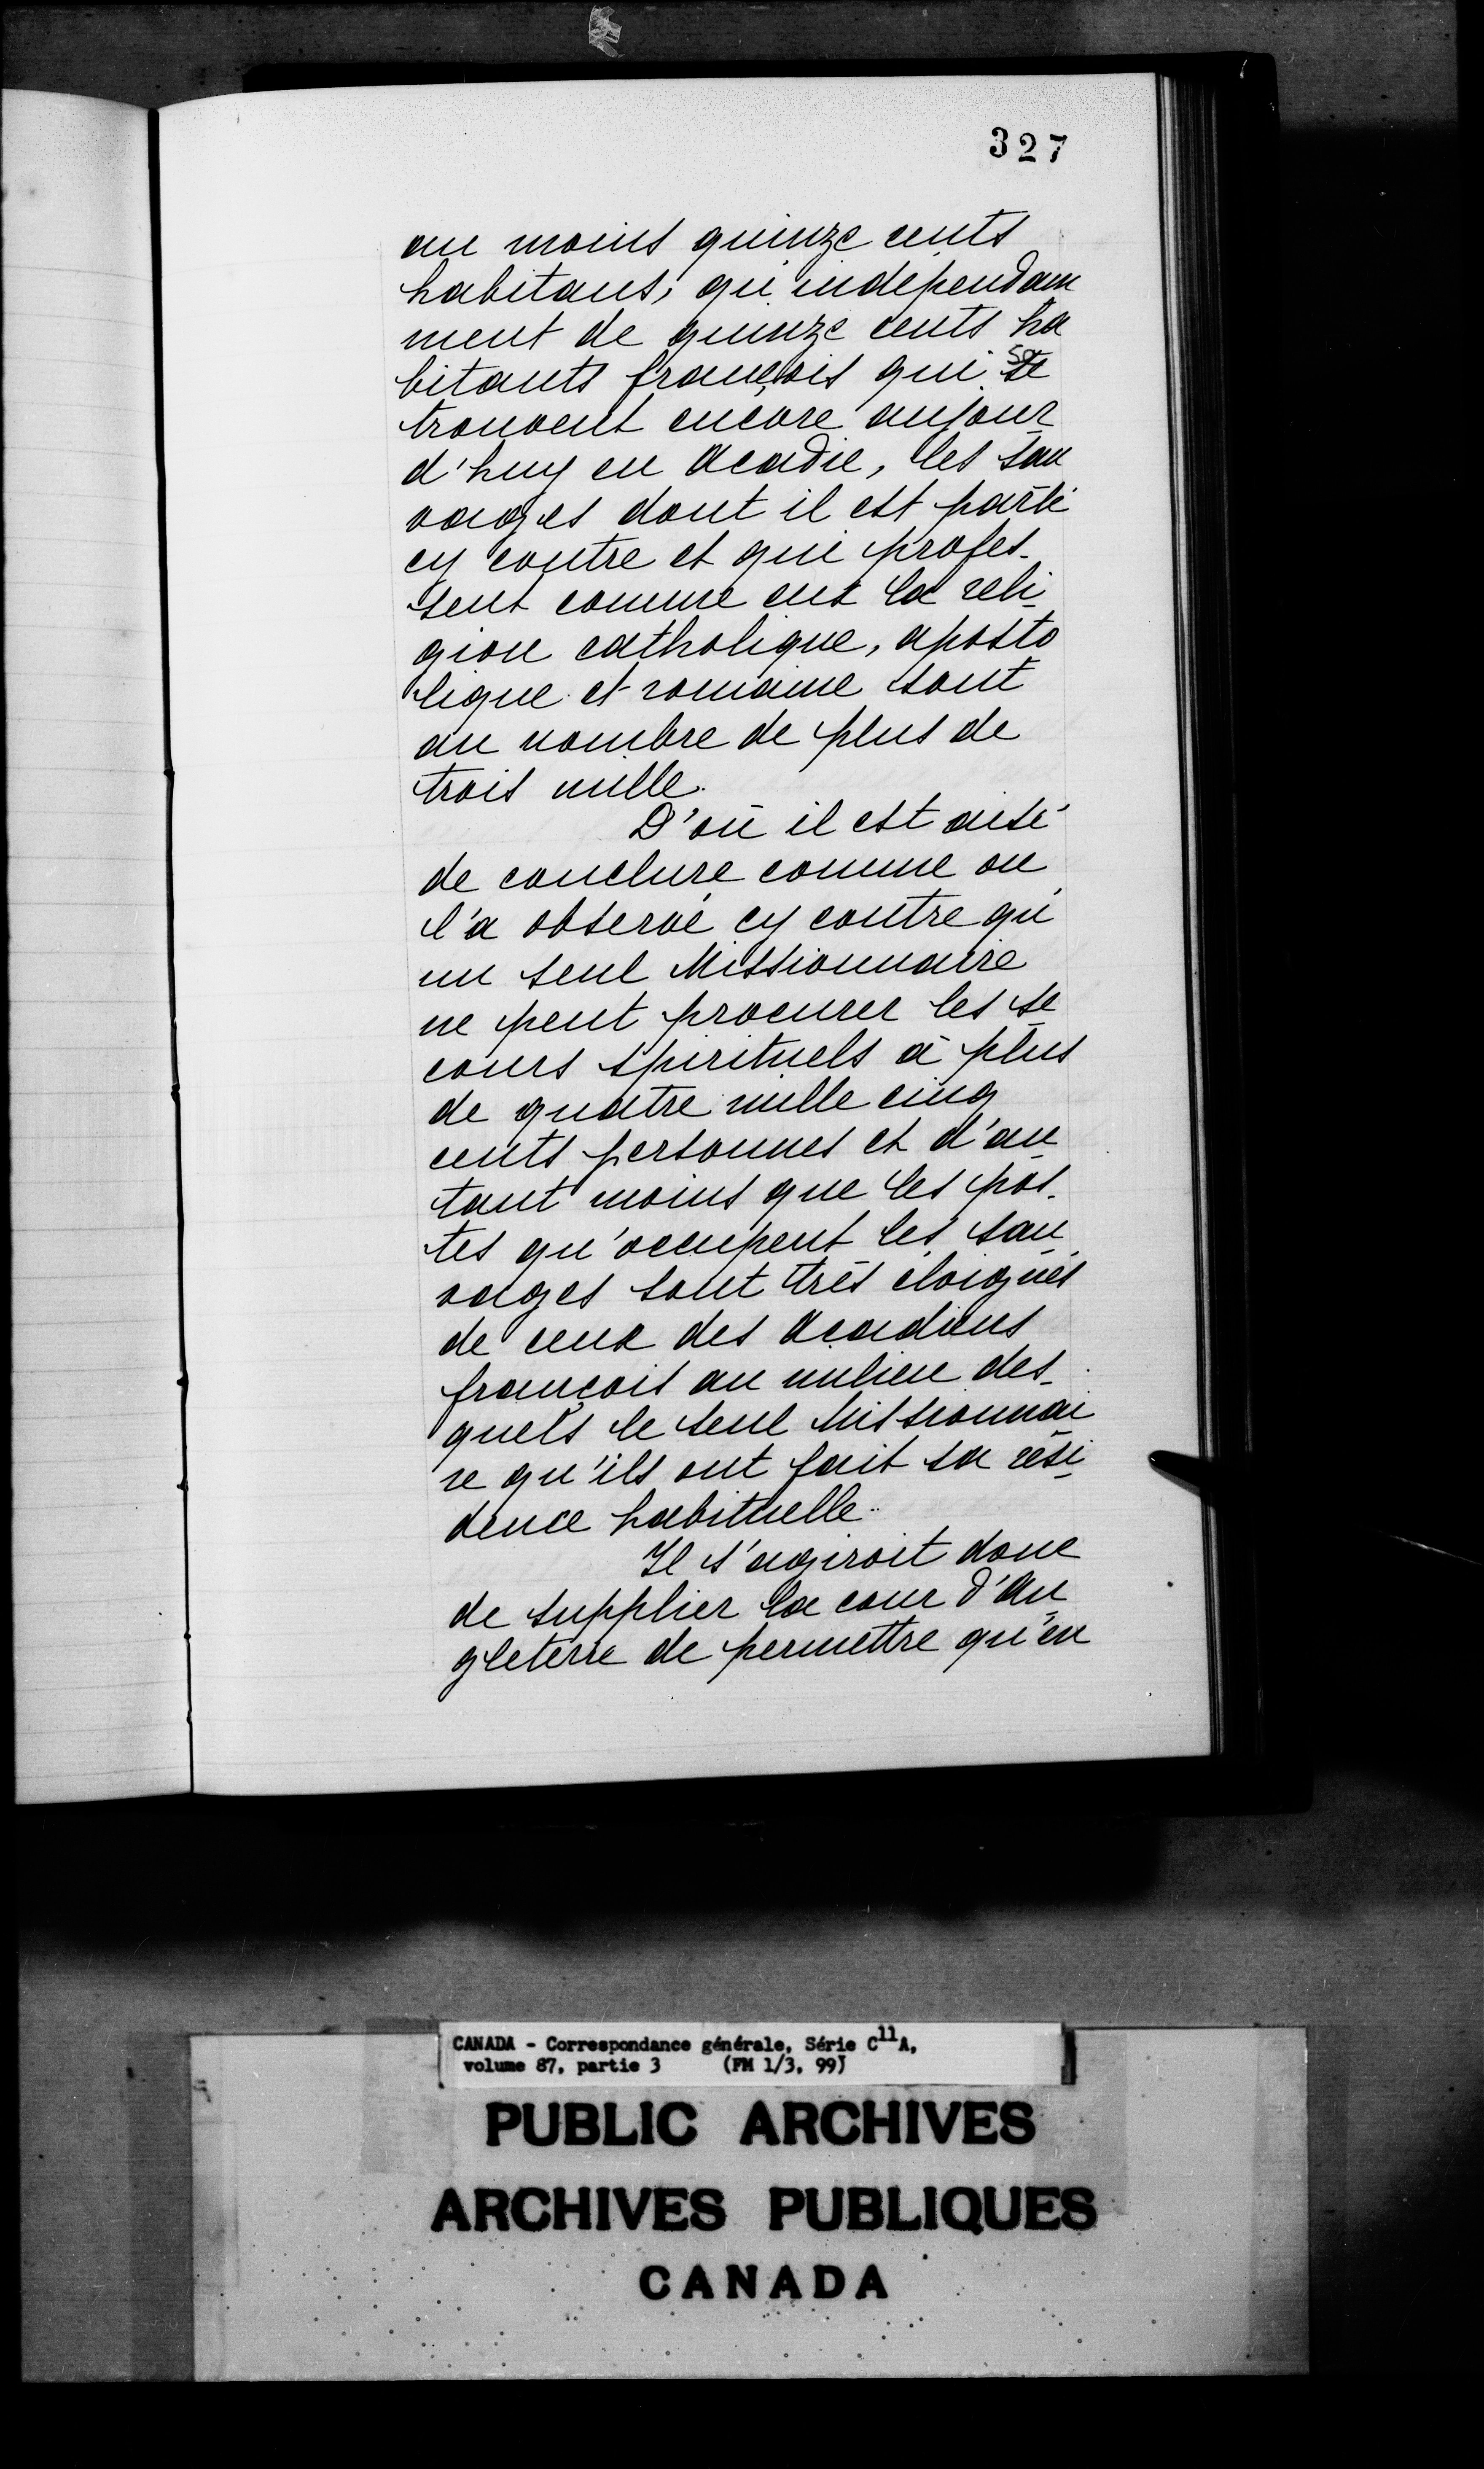 327
au moins quinze cents
habitans, qu'indépendam
ment de quinze cents ha
bitants françois qui se
trouvent encore aujour
d'huy en Acadie, les sau
vages dont il est parlé
cy contre et qui profes-
sent comme eux la reli-
gion catholique, aposto
lique et romaine sont
au nombre de plus de
trois mille.
D'où il est aisé
de conclure comme on
l'a observé cy contre qu'
un seul Missionnaire
ne peut procurer les se
cours spirituels à plus
de quatre mille cinq
cents personnes et d'au
tant moins que les pos-
tes qu'occupent les sau
vages sont très éloignés
de ceux des Acadiens
françois au milieu des-
quels le seul Missionnai
re qu'ils ont fait sa rési-
dence habituelle.
Il s'agiroit donc
de supplier la cour d'An
gleterre de permettre qu'en
CANADA - Correspondance générale, Série C11A,
volume 87, partie 3 (FM 1/3, 99)
PUBLIC ARCHIVES
ARCHIVES PUBLIQUES
CANADA